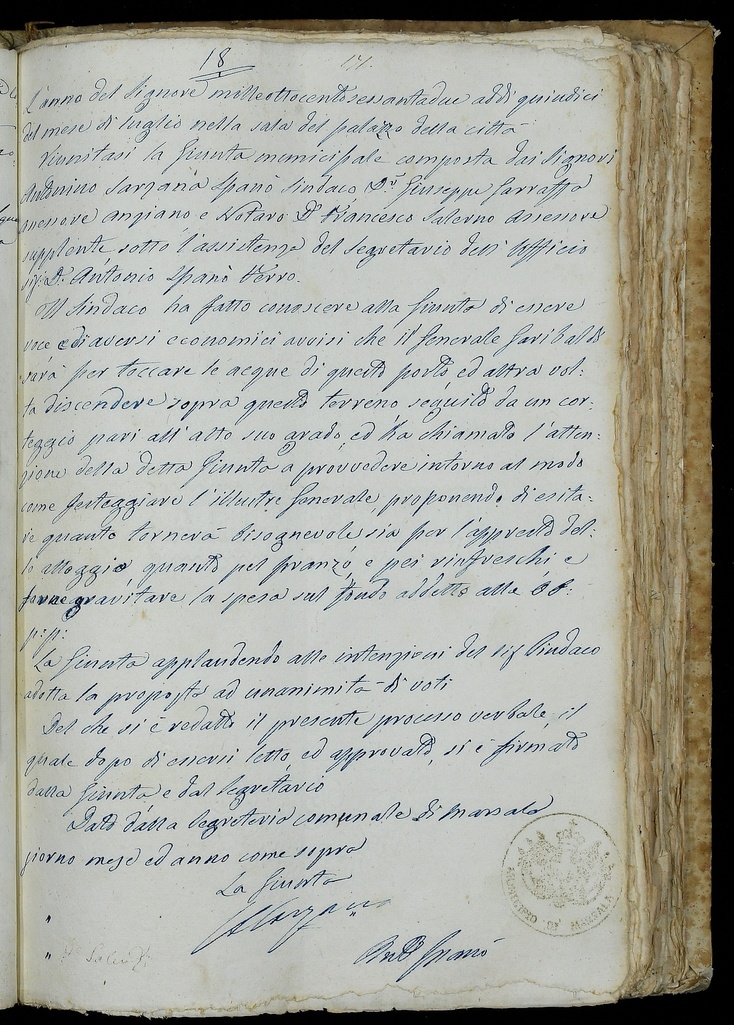 18 17.
L'anno del Signore milleottocentosessantadue addì quindici
del mese di luglio nella sala del palazzo della città
Riunitasi la Giunta municipale composta dai Signori
Antonino Sarzana Spanò Sindaco, Dr Giuseppe Garraffa
assessore anziano e Notaro Dn Francesco Salerno Assessore
supplente sotto l'assistenza del Segretario dell'Ufficio
sig: D. Antonio Spanò Ferro.
Il Sindaco ha fatto conoscere alla Giunta di essere
voce, e diversi economici avvisi che il Generale Garibaldi
sarà per toccare le acque di questo porto ed altra vol:
ta discendere sopra questo terreno seguito da un cor:
teggio pari all'alto suo grado, ed ha chiamato l'atten:
zione della detta Giunta a provvedere intorno al modo
come festeggiare l'illustre Generale, proponendo di esita:
re quanto tornerà bisognevole sia per l'appresto del:
lo alloggio quanto pel pranzo, e pei rinfreschi e
farne gravitare la spesa sul fondo addetto alle OO:
p: p:
La Giunta applaudendo alle intenzioni del sig Sindaco
adotta la proposta ad unanimità di voti
Del che si è redatto il presente processo verbale, il
quale dopo di essersi letto, ed approvato, si è firmato
dalla Giunta e dal Segretario
Dato dalla Segreteria comunale di Marsala
giorno mese ed anno come sopra
La Giunta
" Sarzana
" Salerno
Anto Spanò
MUNICIPIO DI MARSALA